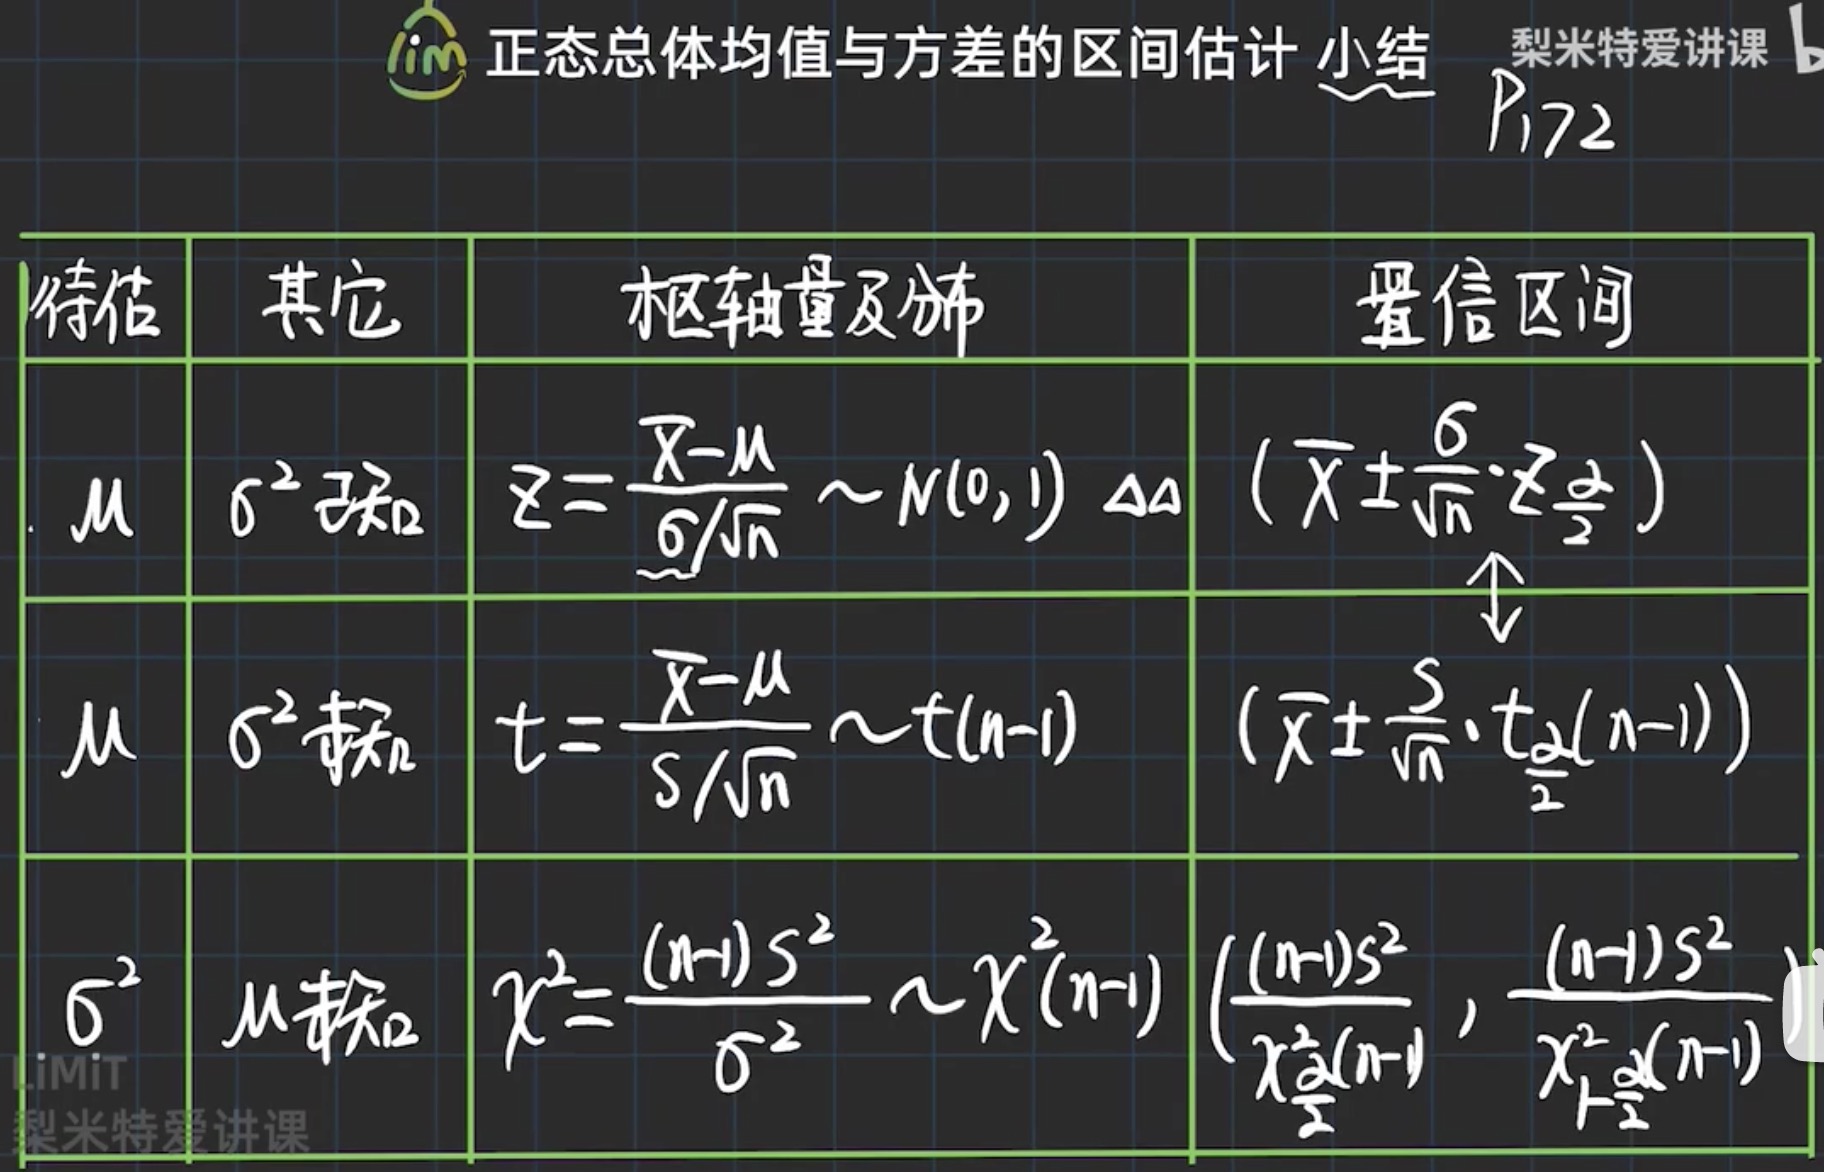 lim 正态总体均值与方差的区间估计 小结
梨米特爱讲课 b
P172
待估 其它 枢轴量及分布 置信区间
μ σ² 已知 Z = (X̄-μ)/(σ/√n) ~ N(0,1) ΔΔ (X̄ ± σ/√n · Z_{α/2})
↕
μ σ² 未知 t = (X̄-μ)/(S/√n) ~ t(n-1) (X̄ ± S/√n · t_{α/2}(n-1))
σ² μ未知 χ² = (n-1)S²/σ² ~ χ²(n-1) ((n-1)S²/χ²_{α/2}(n-1) , (n-1)S²/χ²_{1-α/2}(n-1))
LiMiT
梨米特爱讲课